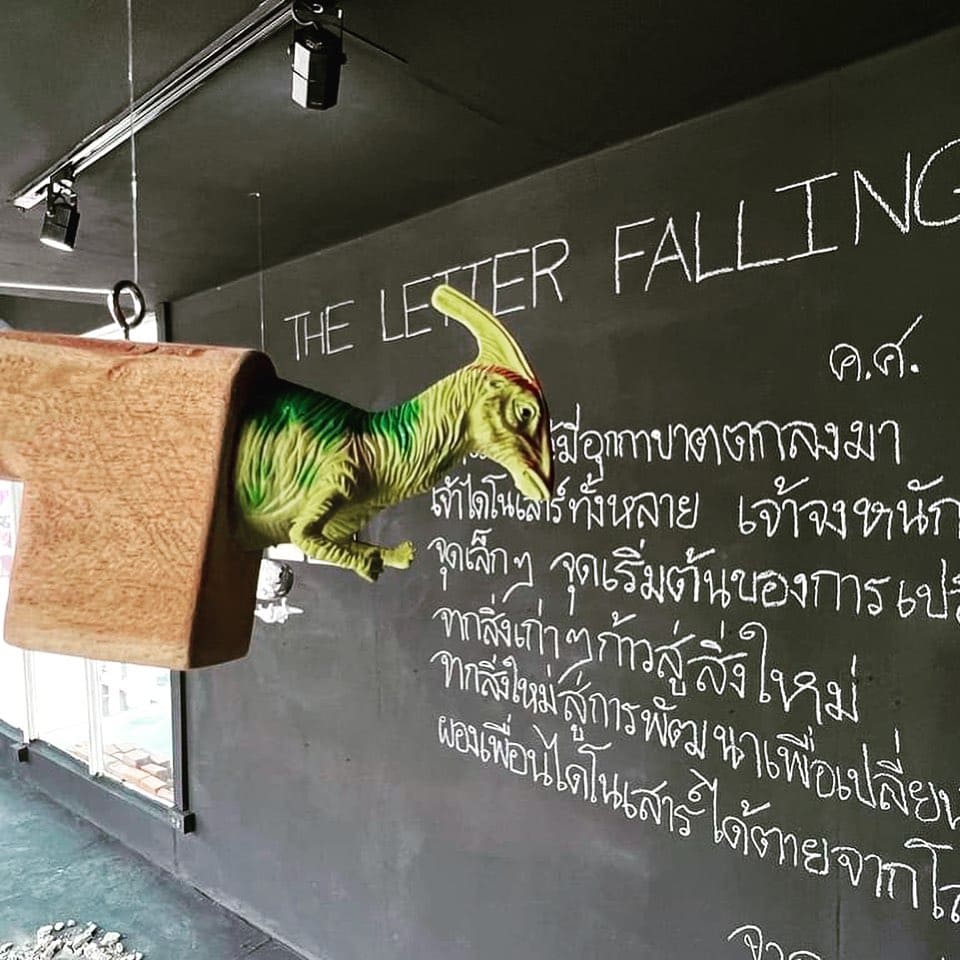 THE LETTER FALLING
ค.ศ.
มีอุกกาบาตตกลงมา
เจ้าไดโนเสาร์ทั้งหลาย เจ้าจงหนัก
จุดเล็กๆ จุดเริ่มต้นของการเปลี่
จากสิ่งเก่าๆก้าวสู่สิ่งใหม่
จากสิ่งใหม่สู่การพัฒนาเพื่อเปลี่ยน
ผองเพื่อนไดโนเสาร์ได้ตายจากโล
จาก